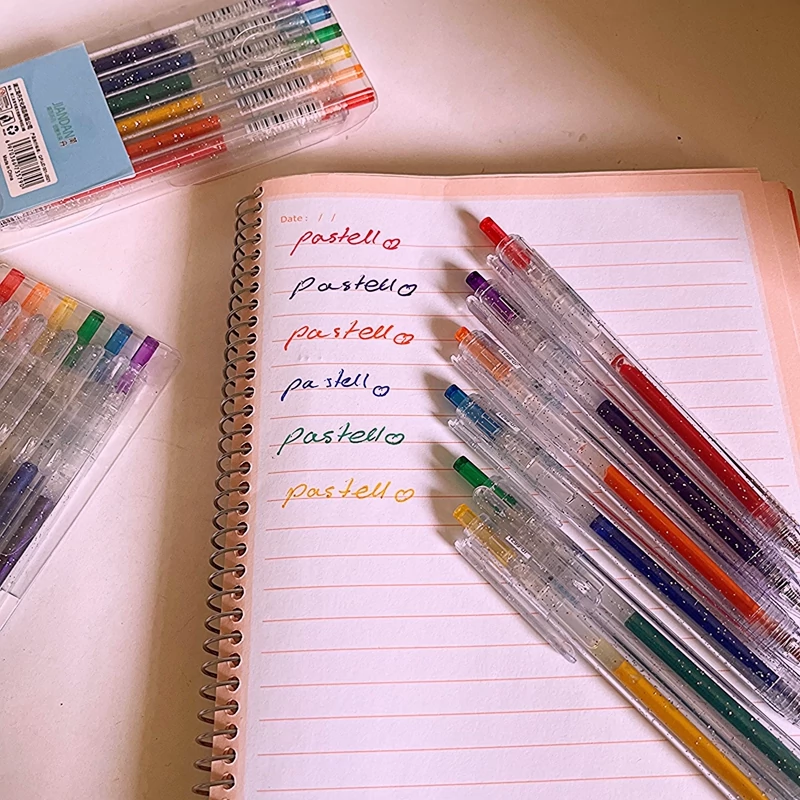 JIANDAN
Made in China
Date : / /
pastell
pastell
pastell
pastell
pastell
pastell